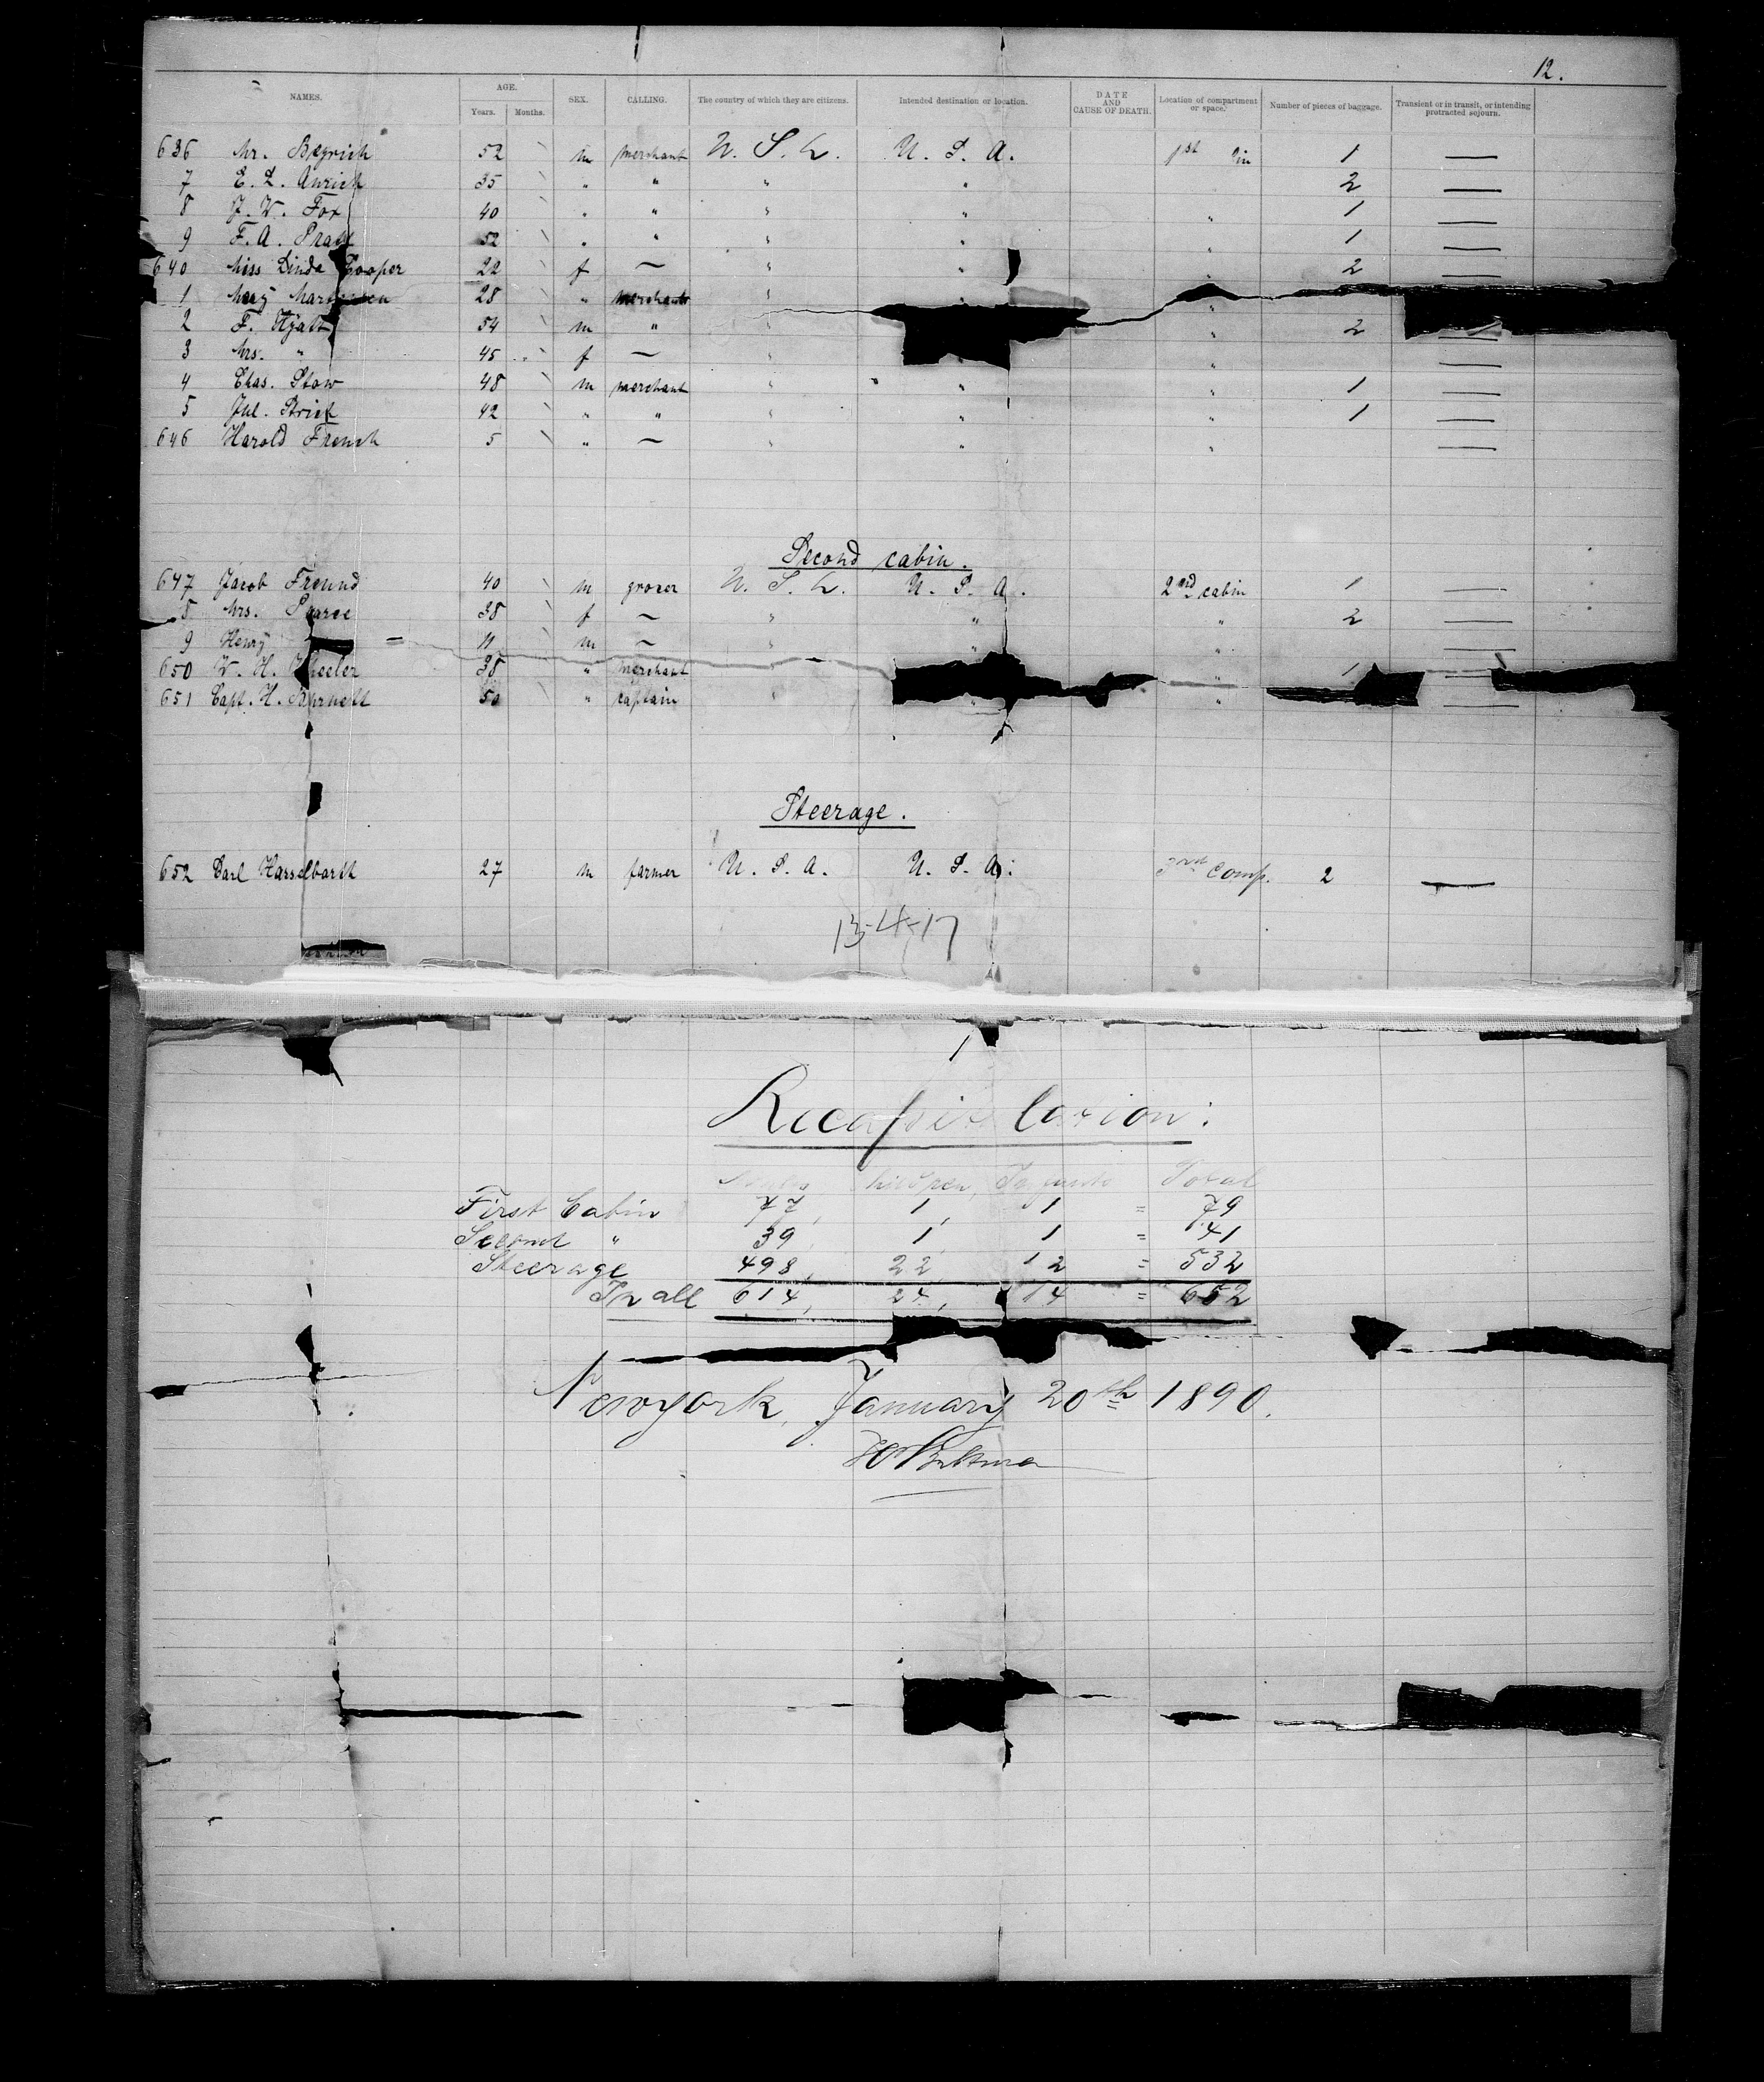 12.
NAMES. AGE. Years. Months. SEX. CALLING. The country of which they are citizens. Intended destination or location. DATE AND CAUSE OF DEATH. Location of compartment or space. Number of pieces of baggage. Transient or in transit, or intending protracted sojourn.
636 Mr. 52 m merchant U. S. A. U. S. A. 1st 1 —
7 E. L. 35 " " " " 2 —
8 J. W. Fox 40 " " " " " 1 —
9 F. A. Pratt 52 " " " " " 1 —
640 Miss Linda Cooper 22 f — " " " 2 —
1 Mary 28 " merchant " " "
2 F. Hyatt 54 m " " " 2 —
3 Mrs. " 45 f — " " —
4 Chas. Stow 48 m merchant " " " 1 —
5 Jul. Strick 42 " " " " " 1 —
646 Harold French 5 " — " " " —
Second cabin.
647 Jacob Freund 40 m grocer U. S. A. U. S. A. 2nd cabin 1 —
8 Mrs. Pearce 38 f — " " " 2 —
9 Henry 11 m — " " " —
650 W. H. Wheeler 38 " merchant " " 1 —
651 Capt. H. Burnett 50 " captain " " " —
Steerage.
652 Carl Hasselbarth 27 m farmer U. S. A. U. S. A. 3rd comp. 2 —
13-4-17
Recapitulation:
Children, Infants Total
First Cabin 77, 1, 1 = 79
Second " 39, 1, 1 = 41
Steerage 498, 22, 12 = 532
In all 614, 24, 14 = 652
Newyork, January 20th 1890.